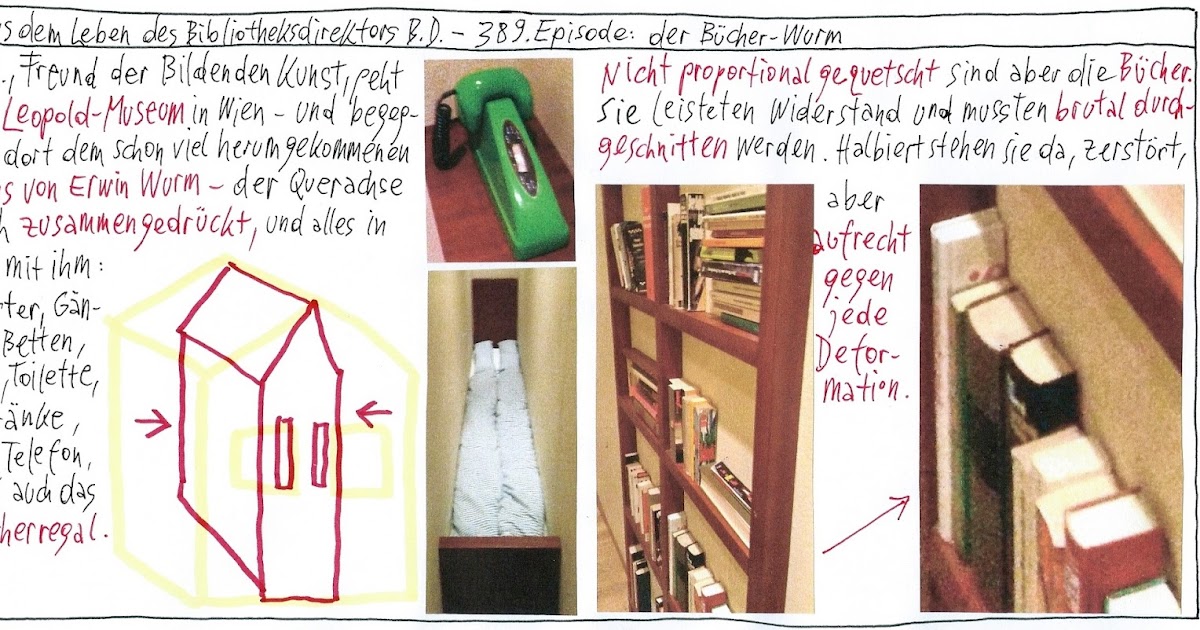 s dem Leben des Bibliotheksdirektors B.D. - 389. Episode: der Bücher-Wurm
., Freund der Bildenden Kunst, geht
Leopold-Museum in Wien - und begeg-
dort dem schon viel herumgekommenen
s von Erwin Wurm - der Querachse
h zusammengedrückt, und alles in
mit ihm:
ter, Gän-
Betten,
, Toilette,
änke,
Telefon,
auch das
herregal.
Nicht proportional gequetscht sind aber die Bücher.
Sie leisteten Widerstand und mussten brutal durch-
geschnitten werden. Halbiert stehen sie da, zerstört,
aber
aufrecht
gegen
jede
Defor-
mation.